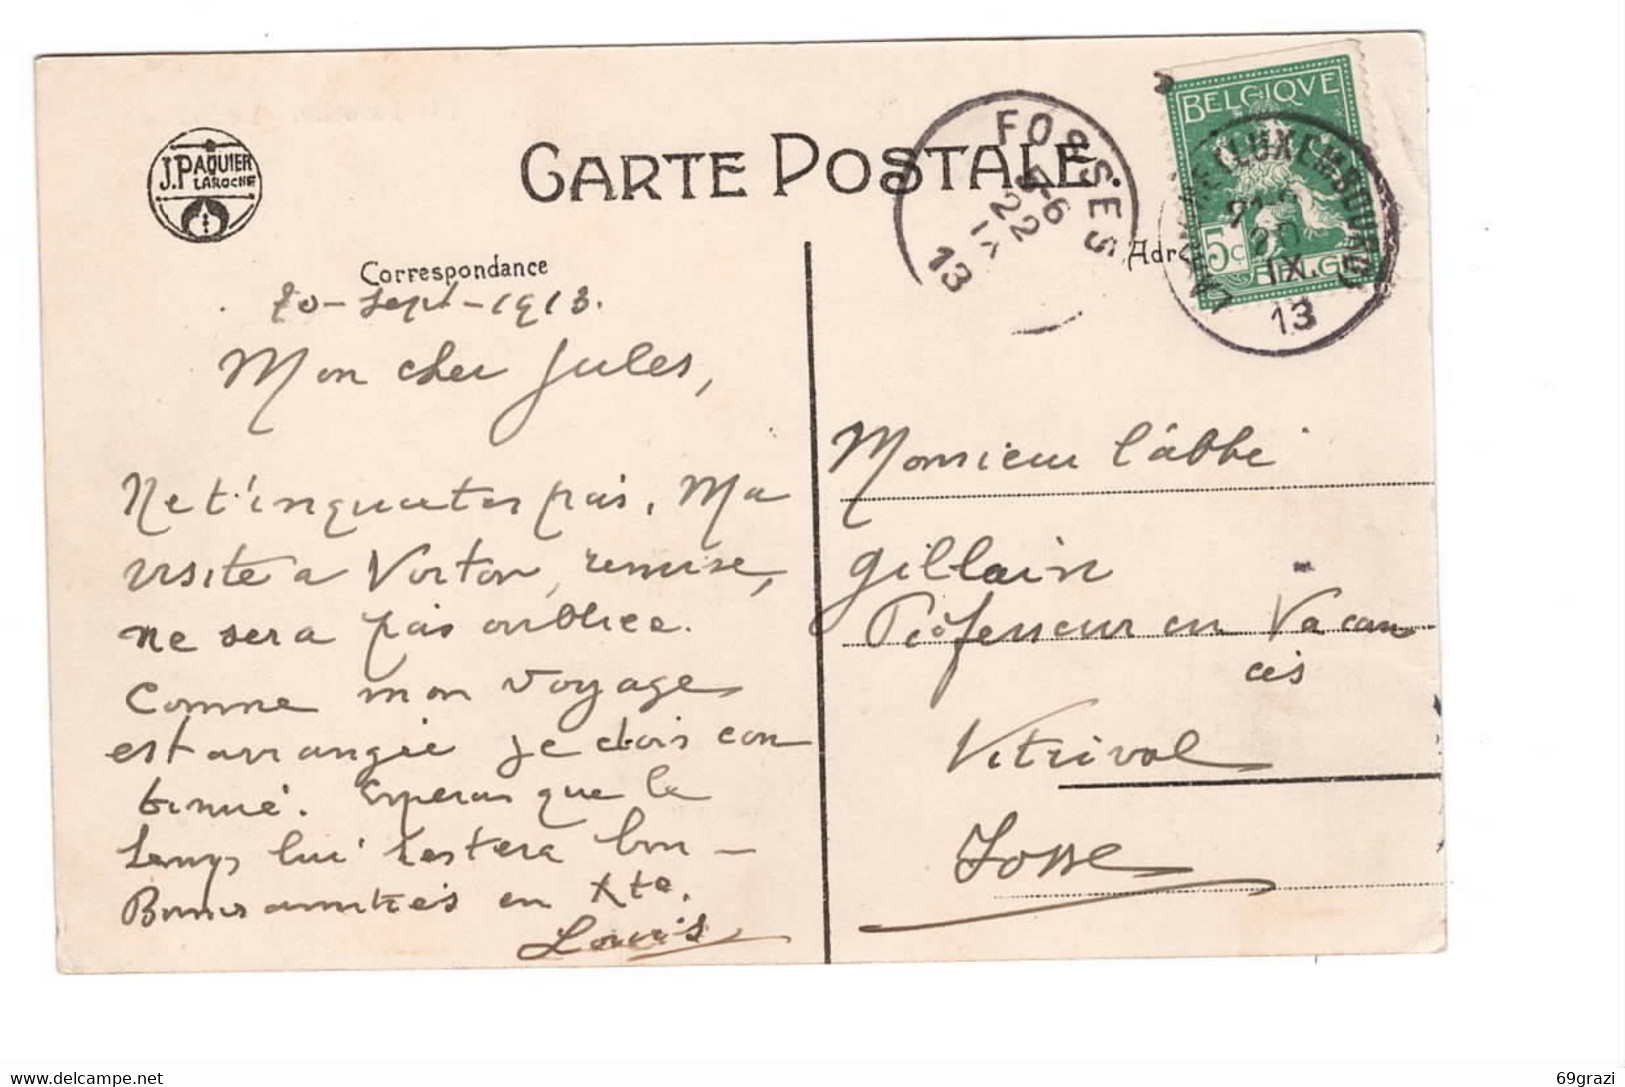 J. PAQUIER
LAROCHE
CARTE POSTALE
FOSSES
5-6
22
IX
13
BELGIQVE
5c
LAROCHE (LUXEMBOURG)
20
IX
13
Correspondance
Adr
20-Sept-1913.
Mon cher Jules,
Ne t'inquietes pas. Ma
visite a Virton, remise,
ne sera pas oubliée.
Comme mon voyage
est arrangée je dois con
tinué. Esperons que le
temps lui restera bon –
Bonnes amitiés en Xte.
Louis
Monsieur l'abbé
Gillain
Professeur en Vacan
ces
Vitrival
Fosse
69grazi
www.delcampe.net